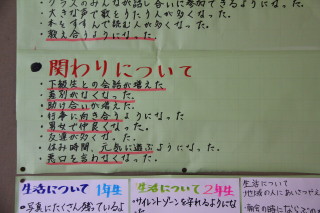 クラスのみんなが話し合いに参加できるようになった。
・大きな声で歌をうたう人が多くなった。
・本をすすんで読む人が多くなった。
・教え合うようになった。
関わりについて
・下級生との会話が増えた
・差別がなくなった。
・助け合いが増えた。
・行事に向き合うようになった。
・男女で仲良くなった。
・友達が多くなった。
・休み時間、元気に遊ぶようになった。
・悪口を言わなくなった。
生活について 1年生
・写真にたくさん残っているよ
生活について 2年生
・サイレントゾーンを守れるようにな
生活について
地域の人にあいさつ